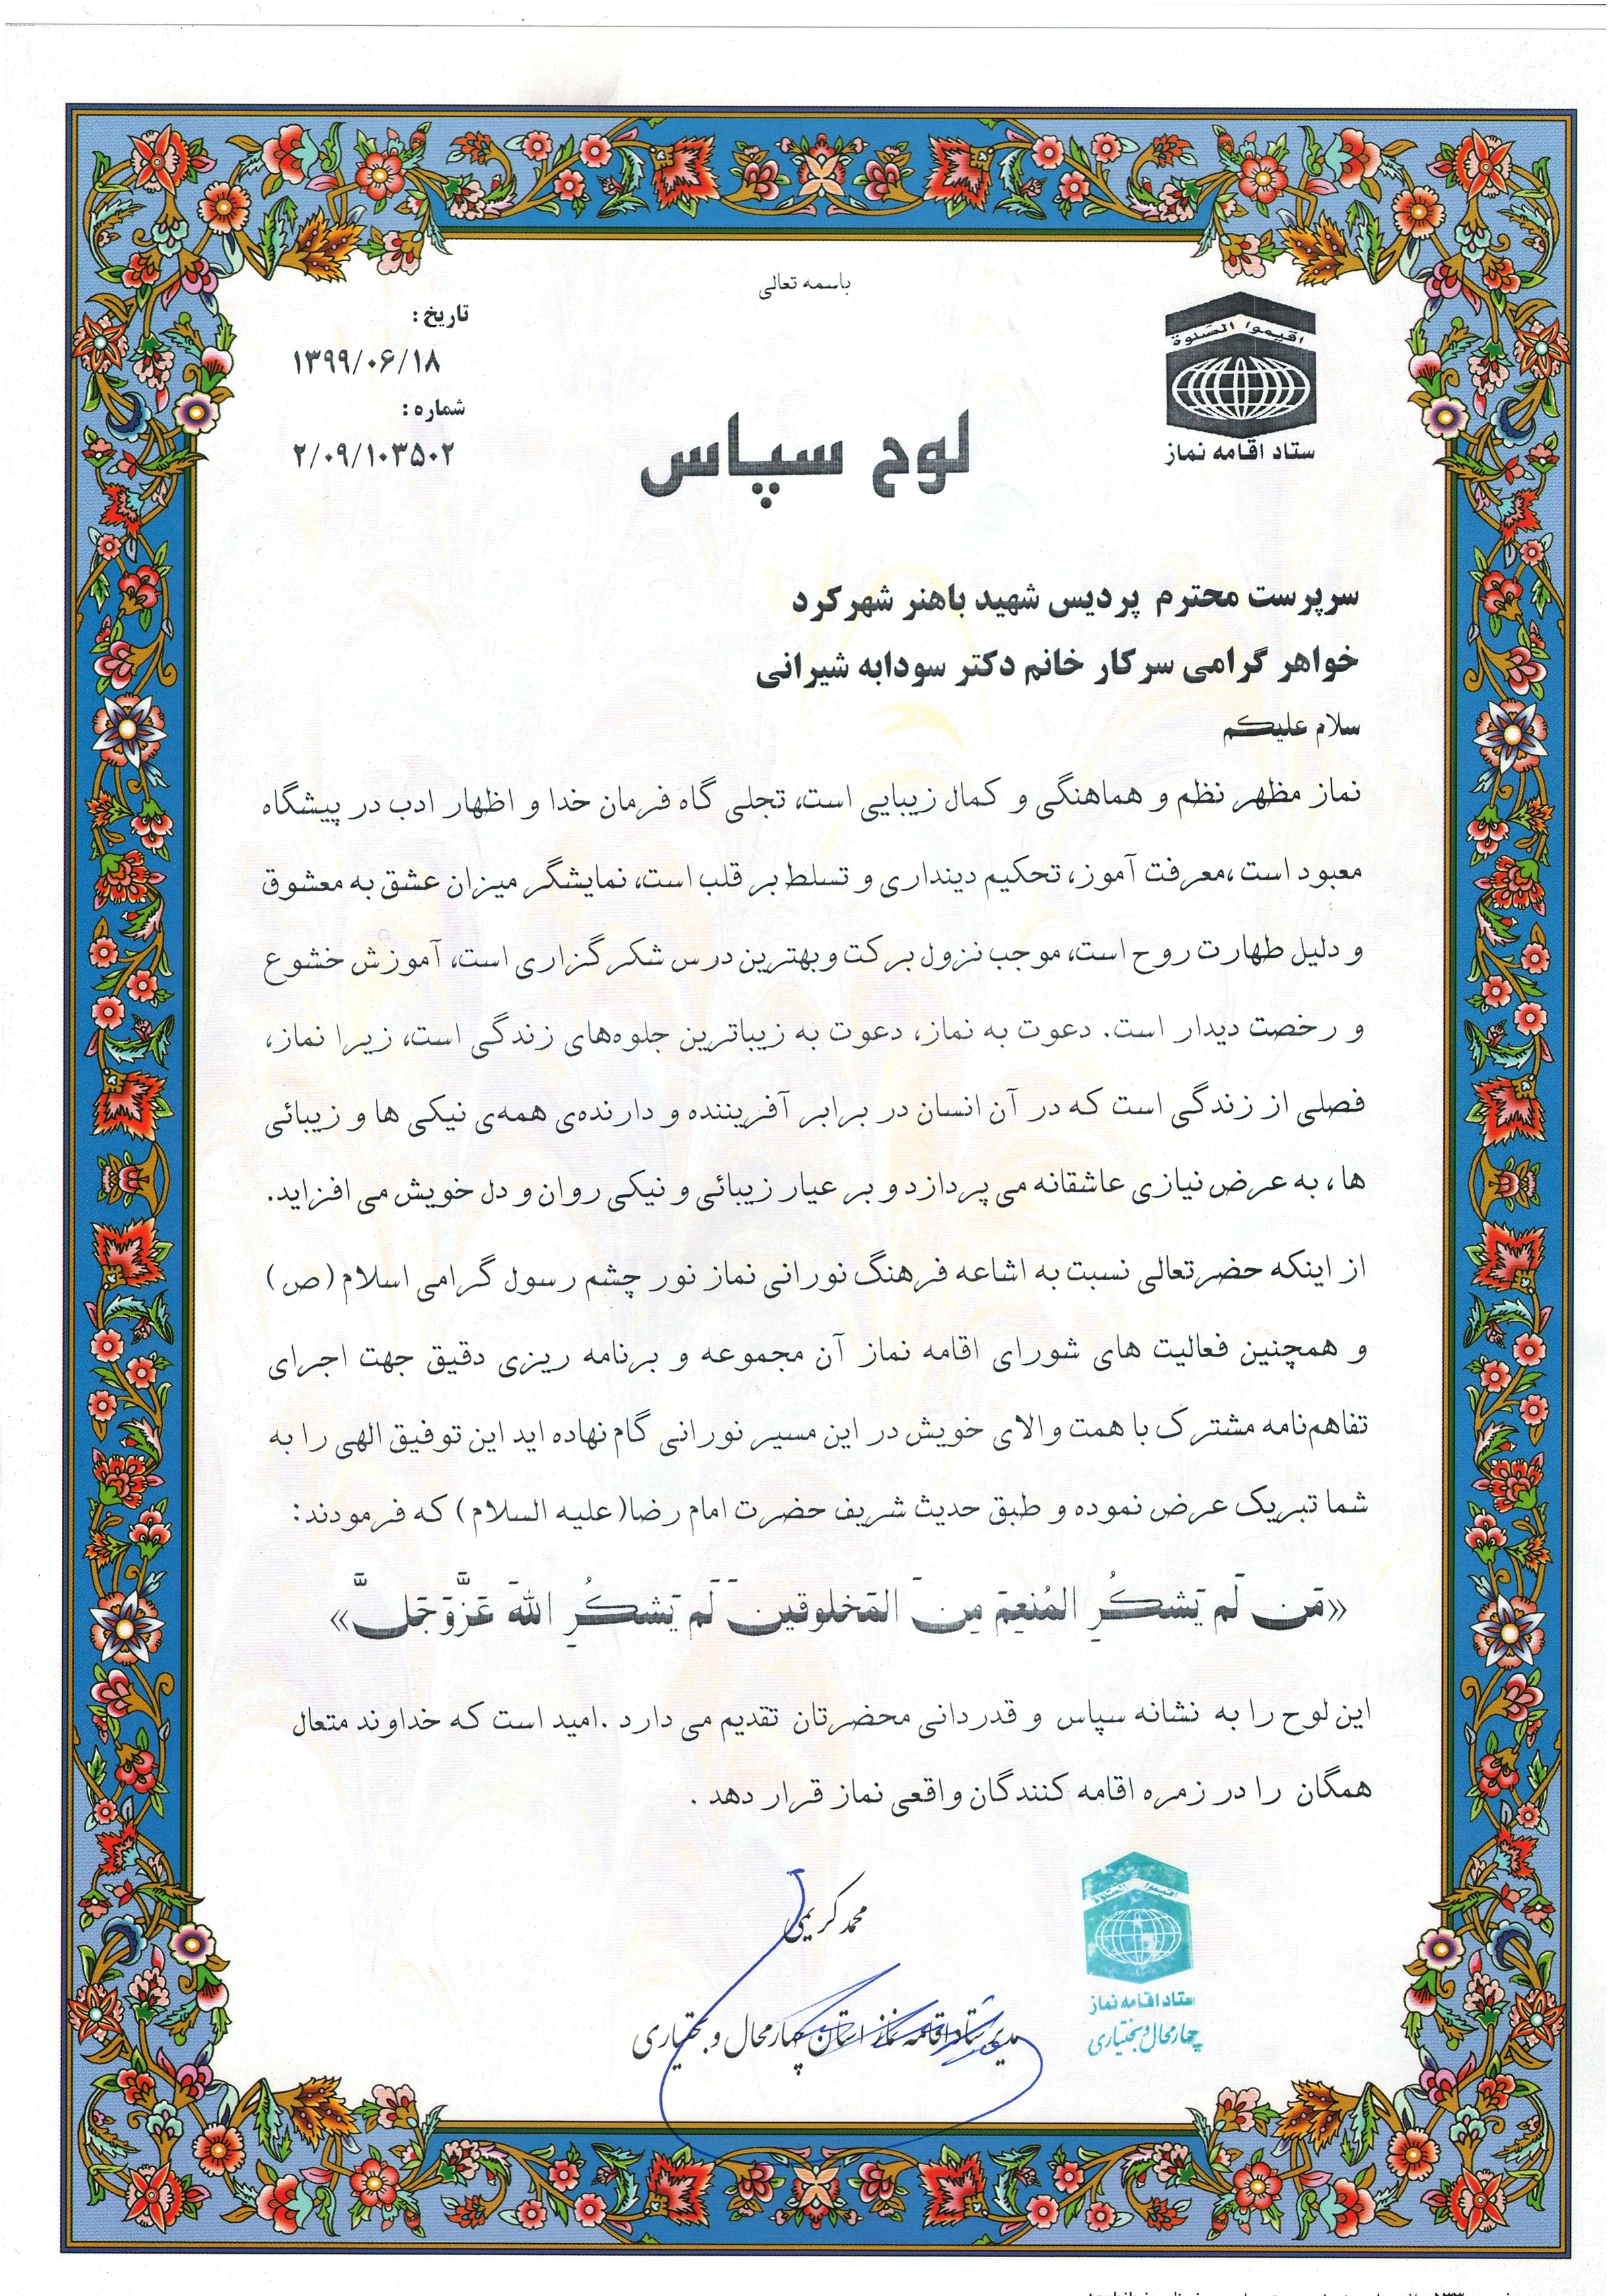 باسمه تعالی
اقیموا الصلوة
ستاد اقامه نماز
تاریخ :
۱۳۹۹/۰۶/۱۸
شماره :
۲/۰۹/۱۰۳۵۰۲
لوح سپاس
سرپرست محترم پردیس شهید باهنر شهرکرد
خواهر گرامی سرکار خانم دکتر سودابه شیرانی
سلام علیکم
نماز مظهر نظم و هماهنگی و کمال زیبایی است، تجلی گاه فرمان خدا و اظهار ادب در پیشگاه
معبود است ،معرفت آموز، تحکیم دینداری و تسلط بر قلب است، نمایشگر میزان عشق به معشوق
و دلیل طهارت روح است، موجب نزول برکت و بهترین درس شکرگزاری است، آموزش خشوع
و رخصت دیدار است. دعوت به نماز، دعوت به زیباترین جلوه‌های زندگی است، زیرا نماز،
فصلی از زندگی است که در آن انسان در برابر آفریننده و دارنده‌ی همه‌ی نیکی ها و زیبائی
ها ، به عرض نیازی عاشقانه می پردازد و بر عیار زیبائی و نیکی روان و دل خویش می افزاید.
از اینکه حضرتعالی نسبت به اشاعه فرهنگ نورانی نماز نور چشم رسول گرامی اسلام (ص)
و همچنین فعالیت های شورای اقامه نماز آن مجموعه و برنامه ریزی دقیق جهت اجرای
تفاهم‌نامه مشترک با همت والای خویش در این مسیر نورانی گام نهاده اید این توفیق الهی را به
شما تبریک عرض نموده و طبق حدیث شریف حضرت امام رضا(علیه السلام) که فرمودند:
«مَن لَم یَشکُرِ المُنعِمَ مِنَ المَخلوقینَ لَم یَشکُرِ اللهَ عَزَّوَجَلَّ»
این لوح را به نشانه سپاس و قدردانی محضرتان تقدیم می دارد .امید است که خداوند متعال
همگان را در زمره اقامه کنندگان واقعی نماز قرار دهد .
محمد کریمی
مدیر ستاد اقامه نماز استان چهارمحال و بختیاری
اقیموا الصلوة
ستاد اقامه نماز
چهارمحال و بختیاری